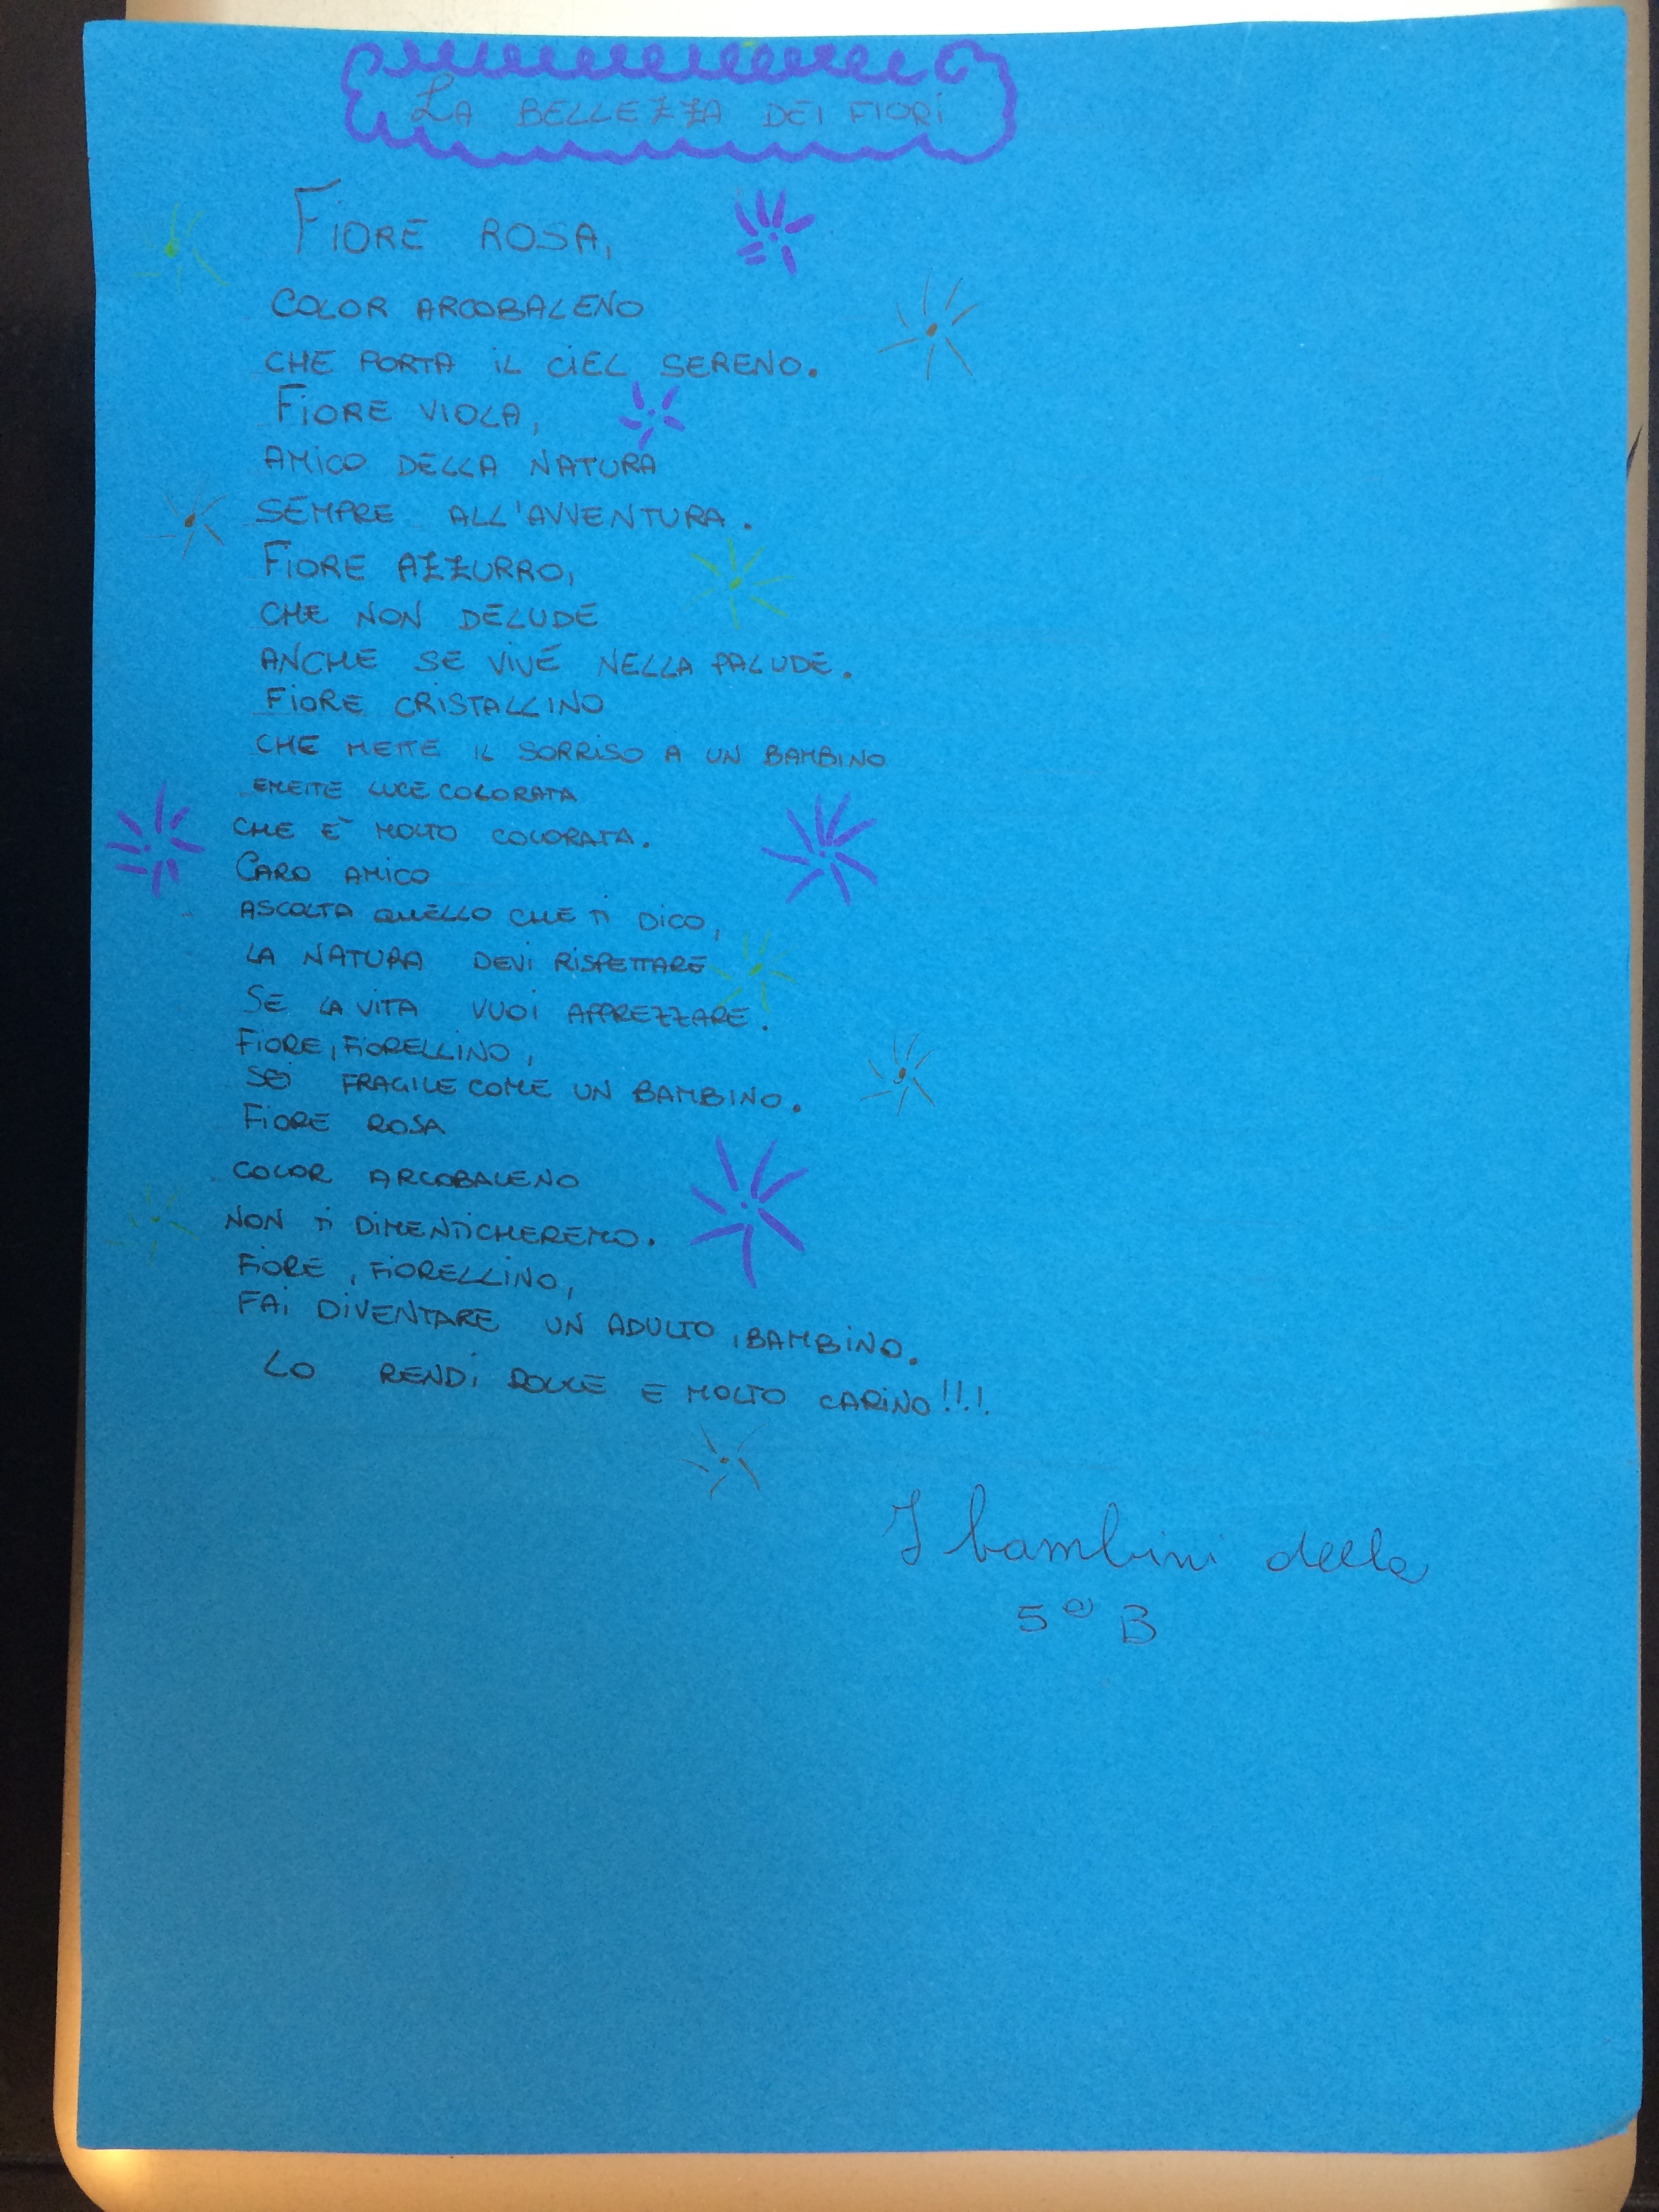 LA BELLEZZA DEI FIORI
FIORE ROSA,
COLOR ARCOBALENO
CHE PORTA IL CIEL SERENO.
FIORE VIOLA,
AMICO DELLA NATURA
SEMPRE ALL'AVVENTURA.
FIORE AZZURRO,
CHE NON DELUDE
ANCHE SE VIVE NELLA PALUDE.
FIORE CRISTALLINO
CHE METTE IL SORRISO A UN BAMBINO
EMETTE LUCE COLORATA
CHE È MOLTO COLORATA.
CARO AMICO
ASCOLTA QUELLO CHE TI DICO,
LA NATURA DEVI RISPETTARE
SE LA VITA VUOI APPREZZARE.
FIORE, FIORELLINO,
SEI FRAGILE COME UN BAMBINO.
FIORE ROSA
COLOR ARCOBALENO
NON TI DIMENTICHEREMO.
FIORE, FIORELLINO,
FAI DIVENTARE UN ADULTO, BAMBINO.
LO RENDI DOLCE E MOLTO CARINO!!!!
I bambini della
5ª B